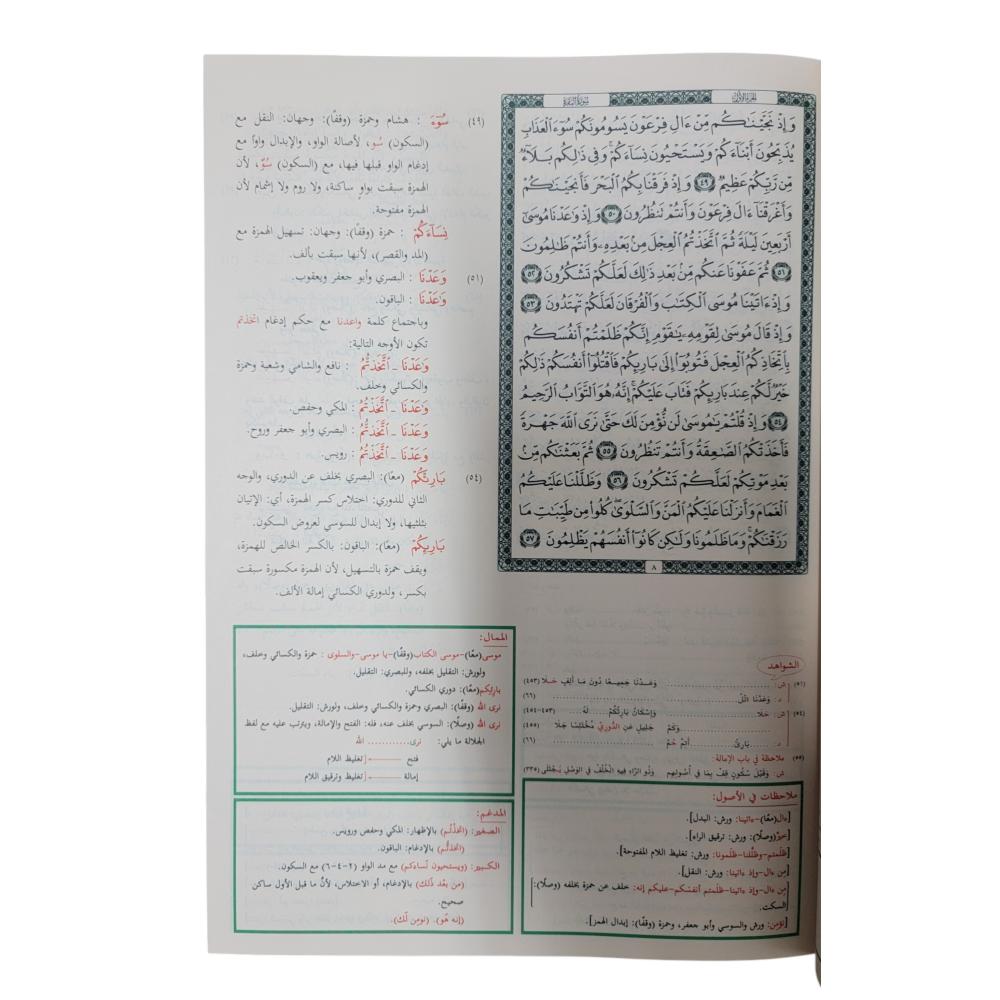 الجزء الأول
سورة البقرة
وَإِذْ نَجَّيْنَٰكُم مِّنْ ءَالِ فِرْعَوْنَ يَسُومُونَكُمْ سُوٓءَ ٱلْعَذَابِ
يُذَبِّحُونَ أَبْنَآءَكُمْ وَيَسْتَحْيُونَ نِسَآءَكُمْ ۚ وَفِى ذَٰلِكُم بَلَآءٌ
مِّن رَّبِّكُمْ عَظِيمٌ ٤٩ وَإِذْ فَرَقْنَا بِكُمُ ٱلْبَحْرَ فَأَنجَيْنَٰكُمْ
وَأَغْرَقْنَآ ءَالَ فِرْعَوْنَ وَأَنتُمْ تَنظُرُونَ ٥٠ وَإِذْ وَٰعَدْنَا مُوسَىٰٓ
أَرْبَعِينَ لَيْلَةً ثُمَّ ٱتَّخَذْتُمُ ٱلْعِجْلَ مِنۢ بَعْدِهِۦ وَأَنتُمْ ظَٰلِمُونَ
٥١ ثُمَّ عَفَوْنَا عَنكُم مِّنۢ بَعْدِ ذَٰلِكَ لَعَلَّكُمْ تَشْكُرُونَ ٥٢
وَإِذْ ءَاتَيْنَا مُوسَى ٱلْكِتَٰبَ وَٱلْفُرْقَانَ لَعَلَّكُمْ تَهْتَدُونَ ٥٣
وَإِذْ قَالَ مُوسَىٰ لِقَوْمِهِۦ يَٰقَوْمِ إِنَّكُمْ ظَلَمْتُمْ أَنفُسَكُم
بِٱتِّخَاذِكُمُ ٱلْعِجْلَ فَتُوبُوٓا۟ إِلَىٰ بَارِئِكُمْ فَٱقْتُلُوٓا۟ أَنفُسَكُمْ ذَٰلِكُمْ
خَيْرٌ لَّكُمْ عِندَ بَارِئِكُمْ فَتَابَ عَلَيْكُمْ ۚ إِنَّهُۥ هُوَ ٱلتَّوَّابُ ٱلرَّحِيمُ
٥٤ وَإِذْ قُلْتُمْ يَٰمُوسَىٰ لَن نُّؤْمِنَ لَكَ حَتَّىٰ نَرَى ٱللَّهَ جَهْرَةً
فَأَخَذَتْكُمُ ٱلصَّٰعِقَةُ وَأَنتُمْ تَنظُرُونَ ٥٥ ثُمَّ بَعَثْنَٰكُم مِّنۢ
بَعْدِ مَوْتِكُمْ لَعَلَّكُمْ تَشْكُرُونَ ٥٦ وَظَلَّلْنَا عَلَيْكُمُ
ٱلْغَمَامَ وَأَنزَلْنَا عَلَيْكُمُ ٱلْمَنَّ وَٱلسَّلْوَىٰ ۖ كُلُوا۟ مِن طَيِّبَٰتِ مَا
رَزَقْنَٰكُمْ ۖ وَمَا ظَلَمُونَا وَلَٰكِن كَانُوٓا۟ أَنفُسَهُمْ يَظْلِمُونَ ٥٧
٨
(٤٩) سُوٓءَ : هشام وحمزة (وقفًا): وجهان: النقل مع
(السكون) سُو، لأصالة الواو، والإبدال واواً مع
إدغام الواو قبلها فيها، مع (السكون) سُوّ، لأن
الهمزة سبقت بواوٍ ساكنة، ولا روم ولا إشمام لأن
الهمزة مفتوحة.
نِسَآءَكُمْ : حمزة (وقفًا): وجهان: تسهيل الهمزة مع
(المد والقصر)، لأنها سبقت بألف.
(٥١) وَعَدْنَا : البصري وأبو جعفر ويعقوب.
وَٰعَدْنَا : الباقون.
وباجتماع كلمة واعدنا مع حكم إدغام اتخذتم
تكون الأوجه التالية:
وَٰعَدْنَا ـ ٱتَّخَذتُّمُ : نافع والشامي وشعبة وحمزة
والكسائي وخلف.
وَٰعَدْنَا ـ ٱتَّخَذْتُمُ : المكي وحفص.
وَعَدْنَا ـ ٱتَّخَذتُّمُ : البصري وأبو جعفر وروح.
وَعَدْنَا ـ ٱتَّخَذْتُمُ : رويس.
(٥٤) بَارِئْكُمْ (معًا): البصري بخلف عن الدوري، والوجه
الثاني للدوري: اختلاس كسر الهمزة، أي: الإتيان
بثلثيها، ولا إبدال للسوسي لعروض السكون.
بَارِئِكُمْ (معًا): الباقون: بالكسر الخالص للهمزة،
ويقف حمزة بالتسهيل، لأن الهمزة مكسورة سبقت
بكسر، ولدوري الكسائي إمالة الألف.
الشواهد
(٥١) ش: ........ وَعَدْنَا جَمِيـعًا دُونَ مَا أَلِفٍ حَـلَا (٤٥٣)
د: وَعَدْنَا اتْلُ ........ (٦٦)
(٥٤) ش: حَلَا ........ وَإِسْكَانُ بَارِئْكُمُ ...... لَهُ ...... (٤٥٣-٤٥٤)
........ وَكَمْ جَلِيلٍ عَنِ الدُّورِيِّ مُخْتَلِسًا جَلَا (٤٥٥)
د: ........ بَارِئْ ...... أَتِمَّ حُـمْ (٦٦)
(٥٥) ملاحظة في باب الإمالة:
ش: وَقَبْلَ سُكُونٍ قِفْ بِمَا فِي أُصُولِهِم وَذُو الرَّاءِ فِيهِ الْخُلْفُ فِي الْوَصْلِ يُجْتَلَى (٣٣٥)
الممال:
موسى (معًا)-موسى الكتاب (وقفًا)-يا موسى-والسلوى : حمزة والكسائي وخلف،
ولورش: التقليل بخلفه، وللبصري: التقليل.
بارئكم (معًا): دوري الكسائي.
نرى الله (وقفًا): البصري وحمزة والكسائي وخلف، ولورش: التقليل.
نرى الله (وصلًا): السوسي بخلف عنه، فله: الفتح والإمالة، ويترتب عليه مع لفظ
الجلالة ما يلي: نرى........ الله
فتح تغليظ اللام
إمالة تغليظ وترقيق اللام
المدغم:
الصغير: (اتخذتم) بالإظهار: المكي وحفص ورويس.
(اتخذتُّم) بالإدغام: الباقون.
الكبير: (ويستحيون نساءكم) مع مد الواو (٢-٤-٦) مع السكون.
(من بعد ذلك) بالإدغام، أو الاختلاس، لأنَّ ما قبل الأول ساكن
صحيح.
(إنه هّو). (نومن لّك).
ملاحظات في الأصول:
[ءال(معًا)-ءاتينا: ورش: البدل].
[خيرٌ(وصلًا): ورش: ترقيق الراء].
[ظلمتم-وظللنا-ظلمونا: ورش: تغليظ اللام المفتوحة].
[من ءال-وإذ ءاتينا: ورش: النقل].
[من ءال-وإذ ءاتينا-ظلمتم أنفسكم-عليكم إنه: خلف عن حمزة بخلفه (وصلًا):
السكت.
[نؤمن: ورش والسوسي وأبو جعفر، وحمزة (وقفًا): إبدال الهمز].